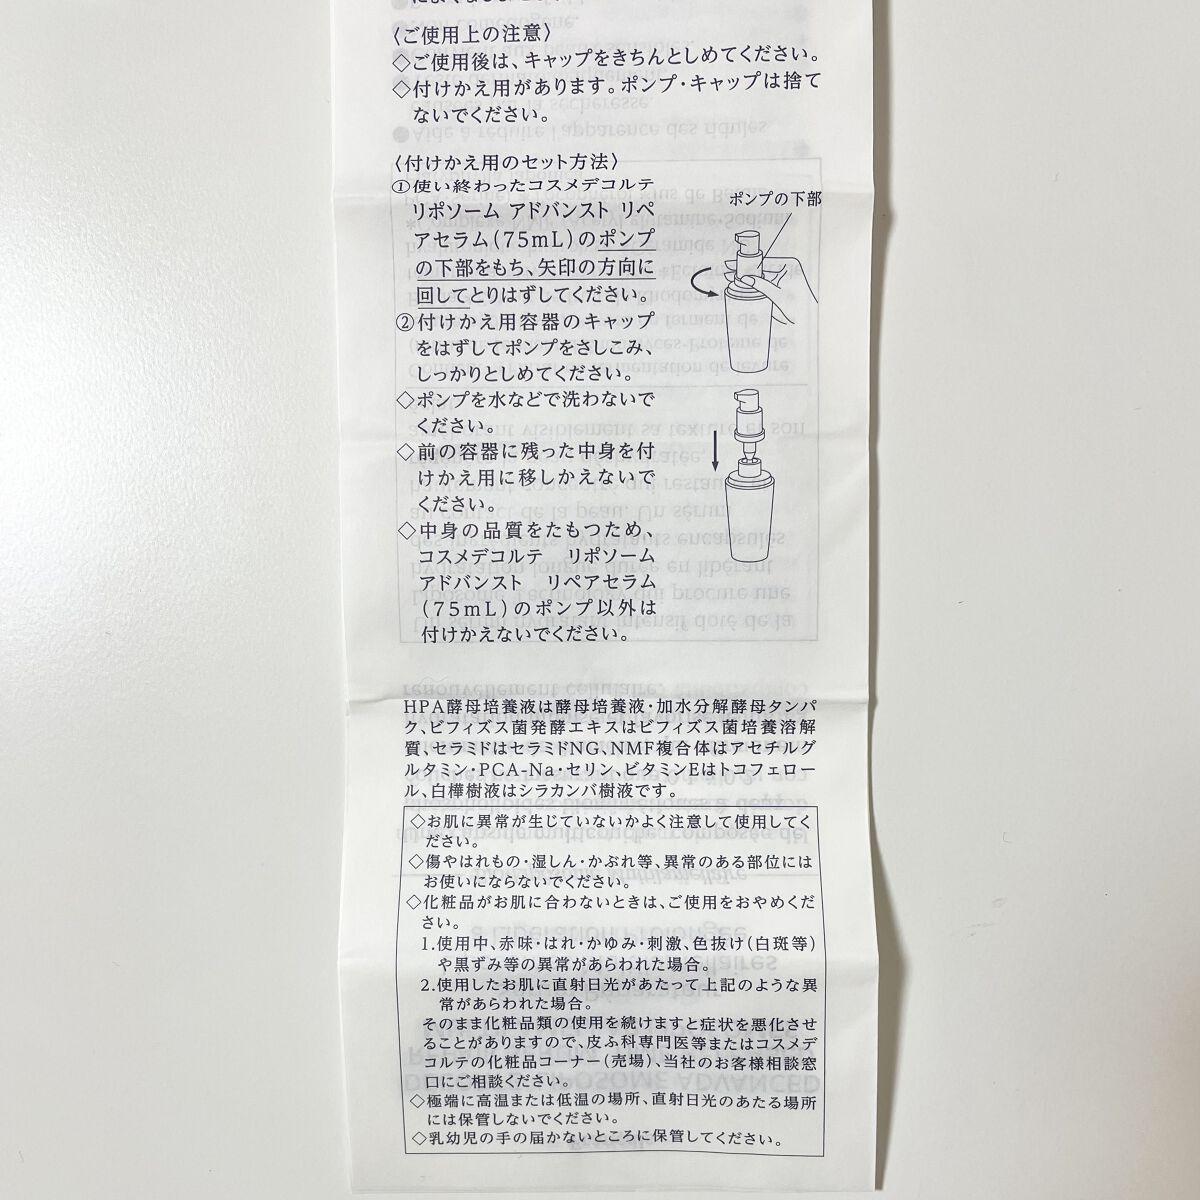 〈ご使用上の注意〉
◇ご使用後は、キャップをきちんとしめてください。
◇付けかえ用があります。ポンプ・キャップは捨て
ないでください。
〈付けかえ用のセット方法〉
①使い終わったコスメデコルテ
リポソーム アドバンスト リペ
アセラム(75mL)のポンプ
の下部をもち、矢印の方向に
回してとりはずしてください。
②付けかえ用容器のキャップ
をはずしてポンプをさしこみ、
しっかりとしめてください。
◇ポンプを水などで洗わないで
ください。
◇前の容器に残った中身を付
けかえ用に移しかえないで
ください。
◇中身の品質をたもつため、
コスメデコルテ リポソーム
アドバンスト リペアセラム
(75mL)のポンプ以外は
付けかえないでください。
ポンプの下部
HPA酵母培養液は酵母培養液・加水分解酵母タンパ
ク、ビフィズス菌発酵エキスはビフィズス菌培養溶解
質、セラミドはセラミドNG、NMF複合体はアセチルグ
ルタミン・PCA-Na・セリン、ビタミンEはトコフェロー
ル、白樺樹液はシラカンバ樹液です。
◇お肌に異常が生じていないかよく注意して使用してく
ださい。
◇傷やはれもの・湿しん・かぶれ等、異常のある部位には
お使いにならないでください。
◇化粧品がお肌に合わないときは、ご使用をおやめくだ
さい。
1.使用中、赤味・はれ・かゆみ・刺激、色抜け(白斑等)
や黒ずみ等の異常があらわれた場合。
2.使用したお肌に直射日光があたって上記のような異
常があらわれた場合。
そのまま化粧品類の使用を続けますと症状を悪化させ
ることがありますので、皮ふ科専門医等またはコスメデ
コルテの化粧品コーナー(売場)、当社のお客様相談窓
口にご相談ください。
◇極端に高温または低温の場所、直射日光のあたる場所
には保管しないでください。
◇乳幼児の手の届かないところに保管してください。